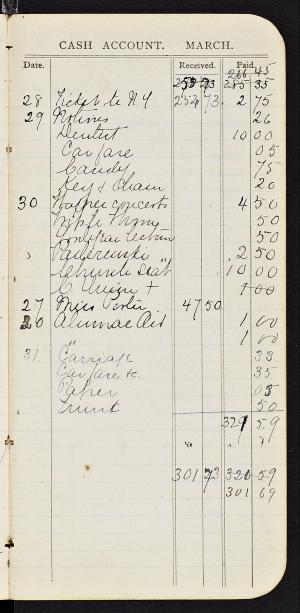 CASH ACCOUNT. MARCH.
Date. Received. Paid.
266 45
253 73 285 35
28 Ticket to N Y 254 73. 2 75
29 Notions 26
Dentist 10 00
Carfare 05
Candy 75
Key & Chain 20
30 Wagner concerts 4 50
50
lecture 50
Paderewski 2 50
Church Seat 10 00
C. Union + 1 00
27 Miss Porter 47 50
20 Alumnae Aid 1 00
" 1 00
31. Carriage 33
Carfare &c. 35
Paper 05
Trunk 50
329 59
" " "
301 73 320 59
301 69